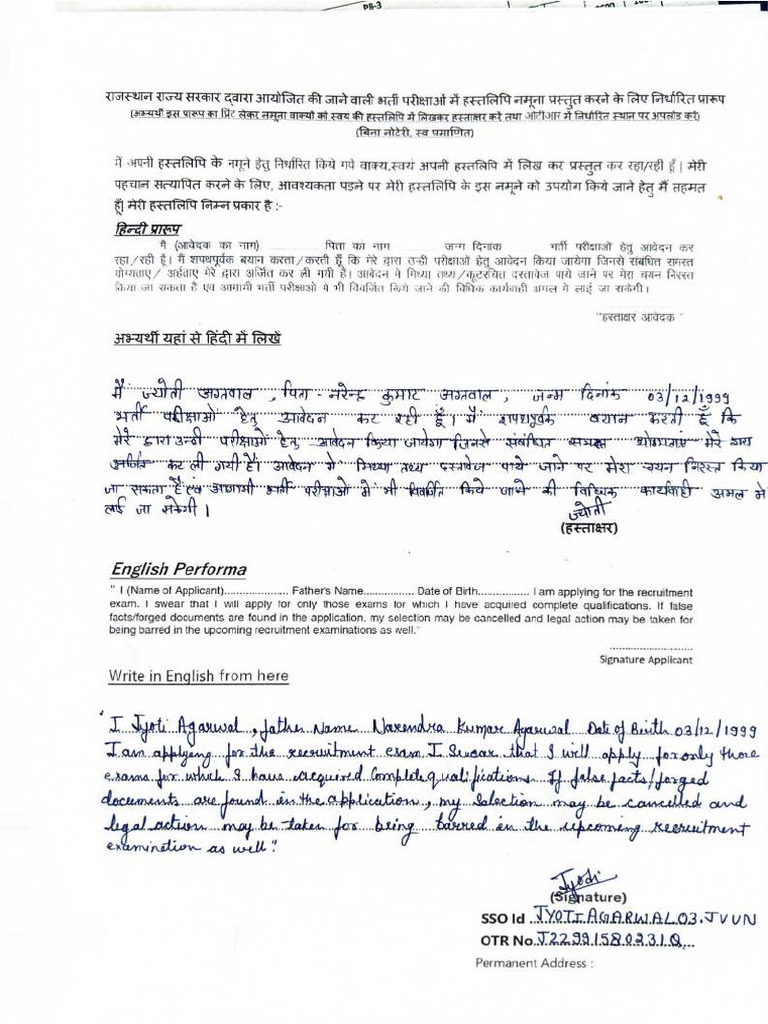 PB-3
राजस्थान राज्य सरकार द्वारा आयोजित की जाने वाली भर्ती परीक्षाओं में हस्तलिपि नमूना प्रस्तुत करने के लिए निर्धारित प्रारूप
(अभ्यर्थी इस प्रारूप का प्रिंट लेकर नमूना वाक्यों को स्वयं की हस्तलिपि में लिखकर हस्ताक्षर करें तथा ओटीआर में निर्धारित स्थान पर अपलोड करें)
(बिना नोटेरी, स्व प्रमाणित)
मैं अपनी हस्तलिपि के नमूने हेतु निर्धारित किये गये वाक्य,स्वयं अपनी हस्तलिपि में लिख कर प्रस्तुत कर रहा/रही हूँ। मेरी
पहचान सत्यापित करने के लिए, आवश्यकता पडने पर मेरी हस्तलिपि के इस नमूने को उपयोग किये जाने हेतु मैं सहमत
हूँ। मेरी हस्तलिपि निम्न प्रकार है :-
हिन्दी प्रारूप
मैं (आवेदक का नाम) ............... पिता का नाम ............ जन्म दिनांक ............ भर्ती परीक्षाओं हेतु आवेदन कर
रहा/रही है। मैं शपथपूर्वक बयान करता/करती हूँ कि मेरे द्वारा उन्ही परीक्षाओं हेतु आवेदन किया जायेगा जिनसे संबंधित समस्त
योग्यताए/ अर्हताए मेरे द्वारा अर्जित कर ली गयी हैं। आवेदन मे मिथ्या तथ्य/कूटरचित दस्तावेज पाये जाने पर मेरा चयन निरस्त
किया जा सकता है एव आगामी भर्ती परीक्षाओं मे भी विवर्जित किये जाने की विधिक कार्यवाही अमल मे लाई जा सकेगी।
"हस्ताक्षर आवेदक "
अभ्यर्थी यहां से हिंदी में लिखें
मैं ज्योती अग्रवाल , पिता - नरेन्द्र कुमार अग्रवाल , जन्म दिनांक 03/12/1999
भर्ती परीक्षाओं हेतु आवेदन कर रही हूँ। मैं शपथपूर्वक बयान करती हूँ कि
मेरे द्वारा उन्ही परीक्षाओं हेतु आवेदन किया जायेगा जिनसे संबंधित समस्त योग्यताएं मेरे द्वारा
अर्जित कर ली गयी हैं। आवेदन मे मिथ्या तथ्य दस्तावेज पाये जाने पर मेरा चयन निरस्त किया
जा सकता है एवं आगामी भर्ती परीक्षाओं में भी विवर्जित किये जाने की विधिक कार्यवाही अमल मे
लाई जा सकेगी।
ज्योती
(हस्ताक्षर)
English Performa
" I (Name of Applicant)..................... Father's Name................ Date of Birth................ I am applying for the recruitment
exam. I swear that I will apply for only those exams for which I have acquired complete qualifications. If false
facts/forged documents are found in the application, my selection may be cancelled and legal action may be taken for
being barred in the upcoming recruitment examinations as well."
Signature Applicant
Write in English from here
"I Jyoti Agarwal , father Name Narendra Kumar Agarwal Date of Birth 03/12/1999
I am applyeng for the recruitment exam I Swear that I will apply for only those
exams for which I have acquired Complete qualifications. If false facts/forged
documents are found in the application, my Selection may be cancelled and
legal action may be taken for being barred in the upcoming recruitment
examination as well."
Jyoti
(Signature)
SSO Id JYOTIAGARWAL03.JVVN
OTR No. J229915802310
Permanent Address :